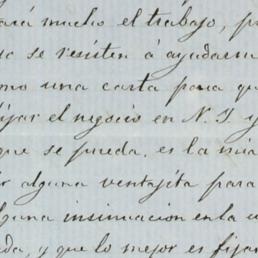 ará mucho el trabajo, p
se resisten á ayudarm
omo una carta para qu
ijar el negocio en N. Y y
que se pueda. es la mia
ir alguna ventajita para
lguna insinuacion en la
da, y que lo mejor es fijar